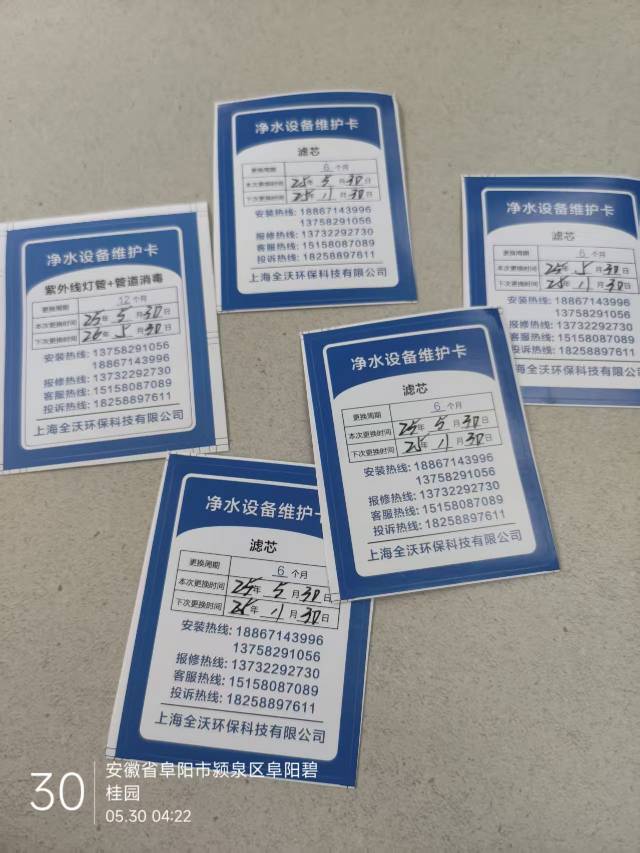 净水设备维护卡
滤芯
更换周期 6 个月
本次更换时间 25年 5 月 30 日
下次更换时间 25年 11 月 30 日
安装热线: 18867143996
13758291056
报修热线: 13732292730
客服热线: 15158087089
投诉热线: 18258897611
上海全沃环保科技有限公司
净水设备维护卡
紫外线灯管+管道消毒
更换周期 12 个月
本次更换时间 25年 5 月 30 日
下次更换时间 26年 5 月 30 日
安装热线: 13758291056
18867143996
报修热线: 13732292730
客服热线: 15158087089
投诉热线: 18258897611
上海全沃环保科技有限公司
净水设备维护卡
滤芯
更换周期 6 个月
本次更换时间 25年 5 月 30 日
下次更换时间 25年 11 月 30 日
安装热线: 18867143996
13758291056
报修热线: 13732292730
客服热线: 15158087089
投诉热线: 18258897611
上海全沃环保科技有限公司
净水设备维护卡
滤芯
更换周期 6 个月
本次更换时间 25年 5 月 30 日
下次更换时间 25年 11 月 30 日
安装热线: 18867143996
13758291056
报修热线: 13732292730
客服热线: 15158087089
投诉热线: 18258897611
上海全沃环保科技有限公司
净水设备维护
滤芯
更换周期 6 个月
本次更换时间 25年 5 月 30 日
下次更换时间 年 11 月 30 日
安装热线: 18867143996
13758291056
报修热线: 13732292730
客服热线: 15158087089
投诉热线: 18258897611
上海全沃环保科技有限公司
30
安徽省阜阳市颍泉区阜阳碧
桂园
05.30 04:22